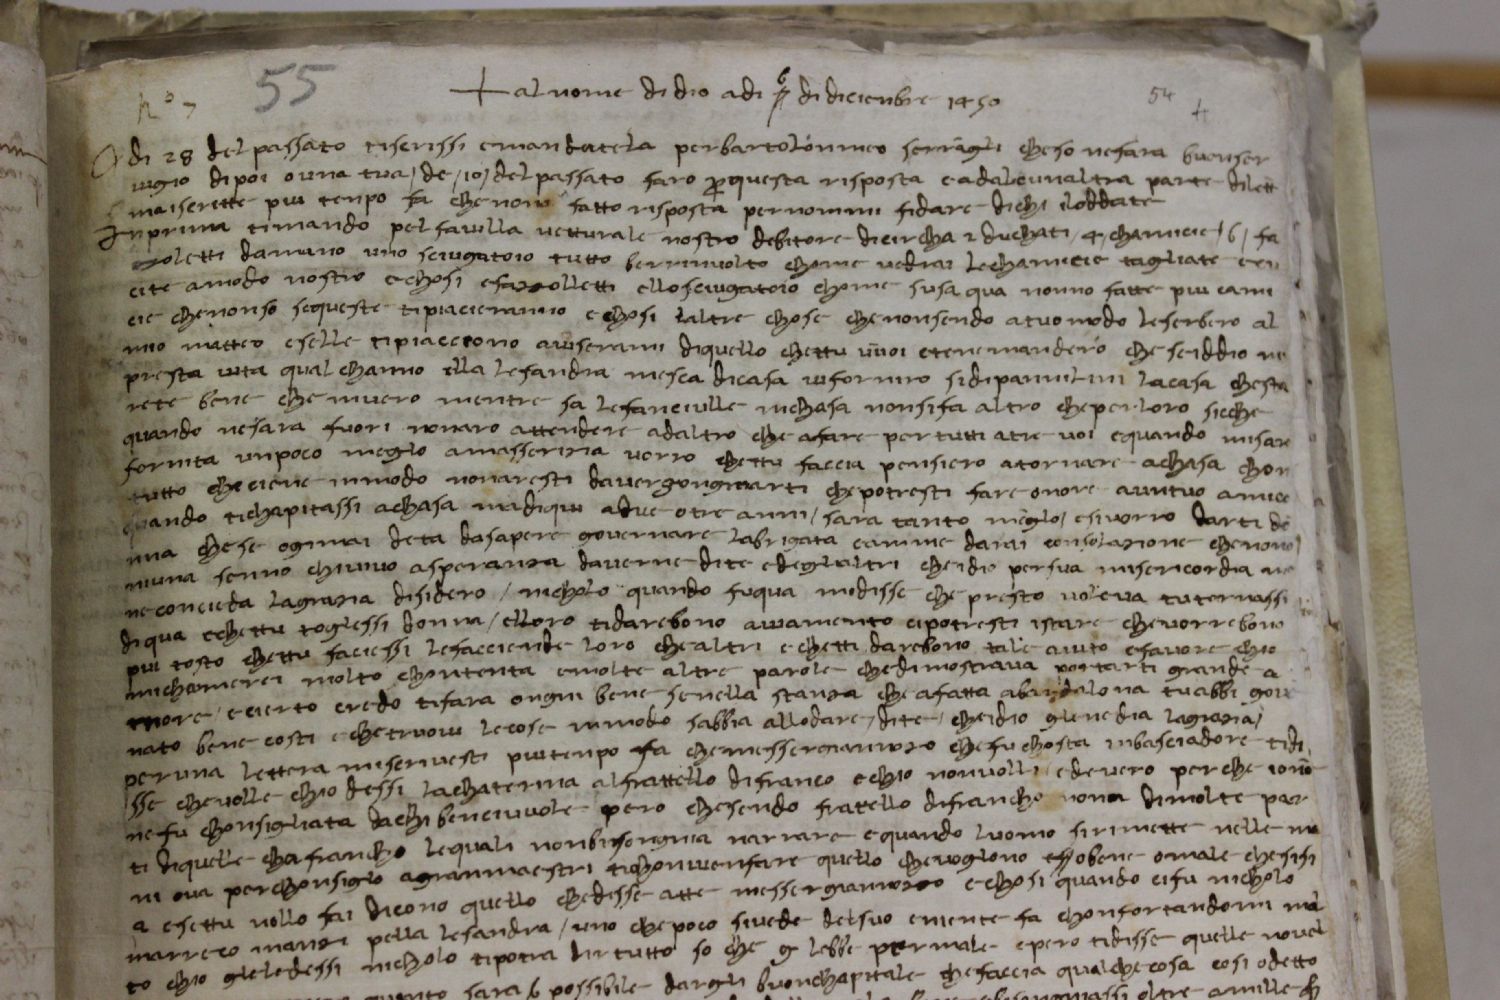 N° 7 55 54
+ al nome di dio a di 6 di dicienbre 1450
A di 28 del passato tiscrissi e manda'tela per bartolonmeo serragli che so nesara buon ser
vigio dipoi o una tua / de / 10 / del passato faro per questa risposta e a dalcunaltra parte di lett
maiscritte piu tenpo fa che nono fatto risposta per nonmi fidare dichi loddate
In prima timando pel favilla vetturale nostro debitore dicircha 2 duchati / 4 / chamicie / 6 / fa
zoletti damano uno sciugatoio tutto berrinvolto chome vedrai le chamicie tagliate e cu
cite amodo nostro e chosi e fazolletti ello sciugatoio chome susa qua nonno fatte piu cami
cie che nonso se queste tipiacieranno e chosi laltre chose che nonsendo a tuo modo leserbero al
mio matteo e selle tipiacciono aviserami diquello chettu vuoi e tene mandero che seiddio mi
presta vita qualchanno ella lesandra mesca dicasa vifornro si di pannilini la casa chesta
rete bene che invero mentre sa le fanciulle inchasa nonsifa altro che per loro sicche
quando nesara fuori nonaro attendere ad altro che afare per tutti atre voi e quando misare
fornita un poco meglio amasserizia vorro chettu faccia pensiero atornare achasa chon
tutto che ciene inmodo nonaresti davergongniarti che potresti fare onore a un tuo amico
quando ti chapitassi achasa ma diqui a due o tre anni / sara tanto meglio / e si vorro darti do
nna che se ogimai deta dasapere governare la brigata e amme darai consolazione che nono
niuna senno chivivo asperanza daverne dite e deglialtri che idio per sua misericordia me
ne concieda la grazia disidero / nicholo quando fuqua mi disse che presto voleva tu tornassi
diqua e chettu togliessi donna / e lloro tidarebono aviamento e ci potresti istare che vorrebono
piu tosto chettu faciessi le faccende loro che altri e chetti darebono tale aiuto e favore chio
michiamerei molto chontenta e molte altre parole che dimostrava portarti grande a
more / e cierto credo tifara ongni bene senella stanza che a fatta a barzalona tu abbi gover
nato bene costi e che truovi le cose inmodo sabbia allodare / dite / che idio glienedia la grazia /
per una lettera miscrivesti piu tenpo fa che messer giannozo che fu chosta inbasciadore ti di
sse che volle chio dessi la chaterina al frattello di franco e chio nonvolli / ed e vero perche io no
ne fu chonsigliata da chi beneivuole pero che sendo fratello di francho nona dimolte par
ti diquelle cha francho le quali nonbisongnia narrare e quando luomo sirimette nelle ma
ni ova per chonsiglio a granmaestri tichonvienfare quello che vogliono o bene o male che si sia
a e settu nollo fai dicono quello che disse atte messer giannozo e chosi quando ci fu nicholo
pella lesandra / uno che poco si vede del suo e niente fa chonfortandomi mol
to chio gliele dessi nicholo tipotra dir tutto so che gli lebbe per male e pero ti disse quelle novel
sara 6 possibile dargli buon chapitale che faccia qualche cosa cosi o detto